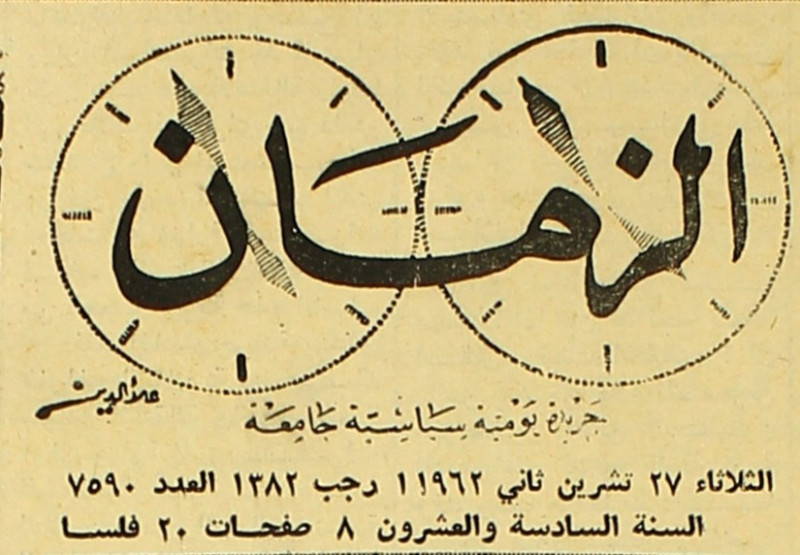 الزمان
علاء الدين
جريدة يومية سياسية جامعة
الثلاثاء ٢٧ تشرين ثاني ١٩٦٢ ١ رجب ١٣٨٢ العدد ٧٥٩٠
السنة السادسة والعشرون ٨ صفحات ٢٠ فلسا